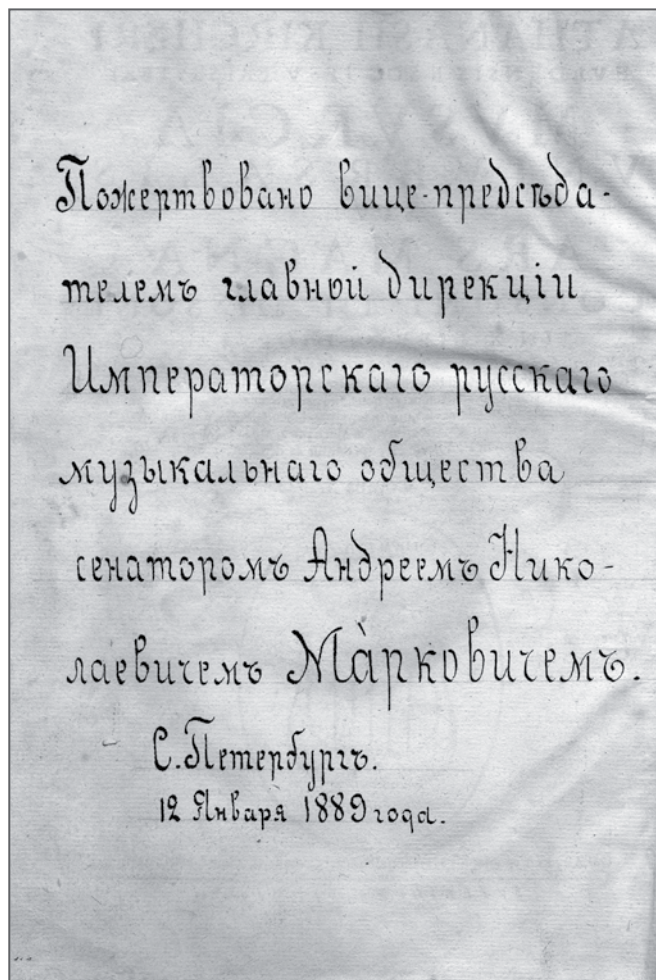 Пожертвовано вице-предсѣда-
телемъ главной дирекціи
Императорскаго русскаго
музыкальнаго общества
сенаторомъ Андреемъ Нико-
лаевичемъ Ма̀рковичемъ.
С. Петербургъ.
12 Января 1889 года.